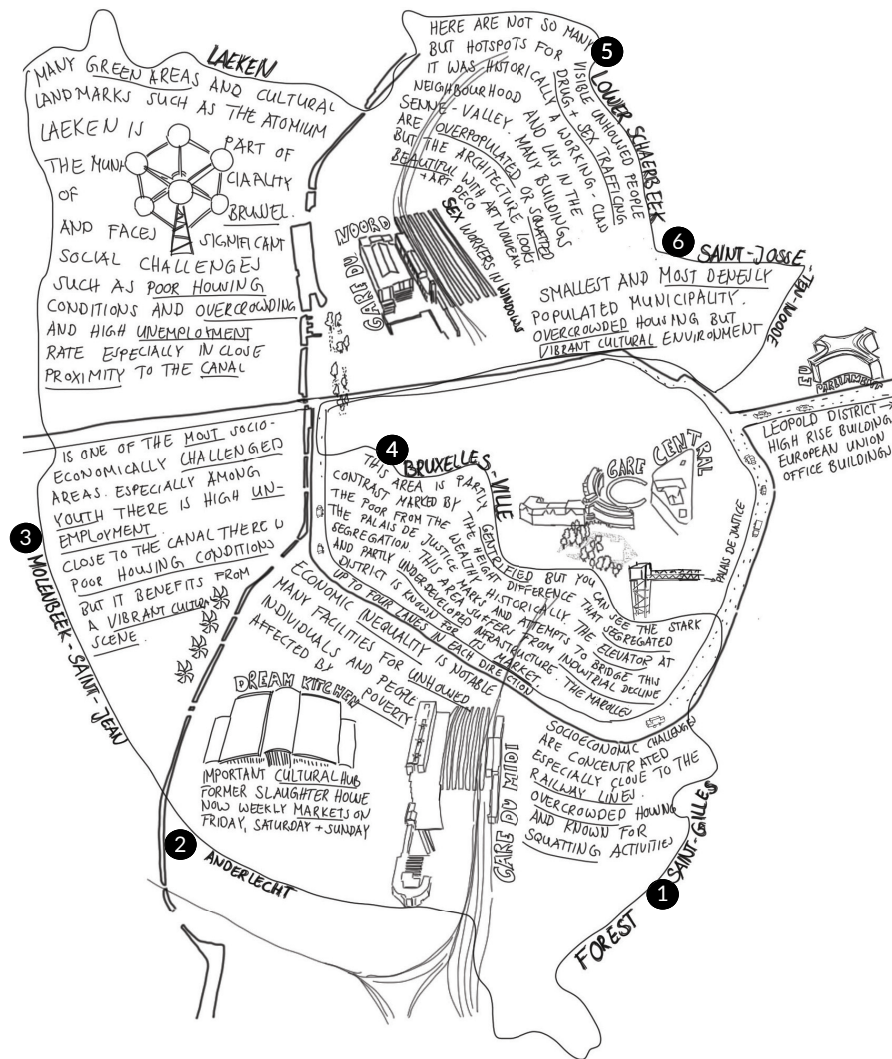 LAEKEN
MANY GREEN AREAS AND CULTURAL
LANDMARKS SUCH AS THE ATOMIUM
LAEKEN IS PART OF
THE MUNI CIAPALITY
OF BRUSSEL.
AND FACES SIGNIFICANT
SOCIAL CHALLENGES
SUCH AS POOR HOUSING
CONDITIONS AND OVERCROWDING
AND HIGH UNEMPLOYMENT
RATE ESPECIALLY IN CLOSE
PROXIMITY TO THE CANAL
5
LOWER SCHAERBEEK
HERE ARE NOT SO MANY
VISIBLE UNHOUSED PEOPLE
BUT HOTSPOTS FOR
DRUG + SEX TRAFFICING
IT WAS HISTORICALLY A WORKING-CLASS
NEIGHBOURHOOD AND LAYS IN THE
SENNE-VALLEY. MANY BUILDINGS
ARE OVERPOPULATED OR SQUATTED
BUT THE ARCHITECTURE LOOKS
BEAUTIFUL WITH ART NOUVEAU
+ ART DECO
SEX WORKERS IN WINDOWS
GARE DU NOORD
6
SAINT-JOSSE
-TEN-NOODE
SMALLEST AND MOST DENSELY
POPULATED MUNICIPALITY.
OVERCROWDED HOUSING BUT
VIBRANT CULTURAL ENVIRONMENT
EU
PARLIAMENT
LEOPOLD DISTRICT →
HIGH RISE BUILDING
EUROPEAN UNION
OFFICE BUILDINGS
3
MOLENBEEK-SAINT-JEAN
IS ONE OF THE MOST SOCIO-
ECONOMICALLY CHALLENGED
AREAS. ESPECIALLY AMONG
YOUTH THERE IS HIGH UN-
EMPLOYMENT
CLOSE TO THE CANAL THERE IS
POOR HOUSING CONDITIONS
BUT IT BENEFITS FROM
A VIBRANT CULTURE
SCENE.
4
BRUXELLES-VILLE
THIS AREA IS PARTLY GENTRIFIED BUT YOU CAN SEE THE STARK
CONTRAST MARKED BY THE HEIGHT DIFFERENCE THAT SEGREGATED
THE POOR FROM THE WEALTHY HISTORICALLY. THE ELEVATOR AT
THE PALAIS DE JUSTICE MARKS AND ATTEMPTS TO BRIDGE THIS
SEGREGATION. THIS AREA SUFFERS FROM INDUSTRIAL DECLINE
AND PARTLY UNDERDEVELOPED INFRASTRUCTURE. THE MAROLLES
DISTRICT IS KNOWN FOR ITS MARKET.
UP TO FOUR LANES IN EACH DIRECTION
GARE CENTRAL
PALAIS DE JUSTICE
ECONOMIC INEQUALITY IS NOTABLE
MANY FACILITIES FOR UNHOUSED
INDIVIDUALS AND PEOPLE
AFFECTED BY POVERTY
DREAM KITCHEN
IMPORTANT CULTURAL HUB
FORMER SLAUGHTER HOUSE
NOW WEEKLY MARKETS ON
FRIDAY, SATURDAY + SUNDAY
2
ANDERLECHT
GARE DU MIDI
SOCIOECONOMIC CHALLENGES
ARE CONCENTRATED
ESPECIALLY CLOSE TO THE
RAILWAY LINES.
OVERCROWDED HOUSING
AND KNOWN FOR
SQUATTING ACTIVITIES
SAINT-GILLES
1
FOREST